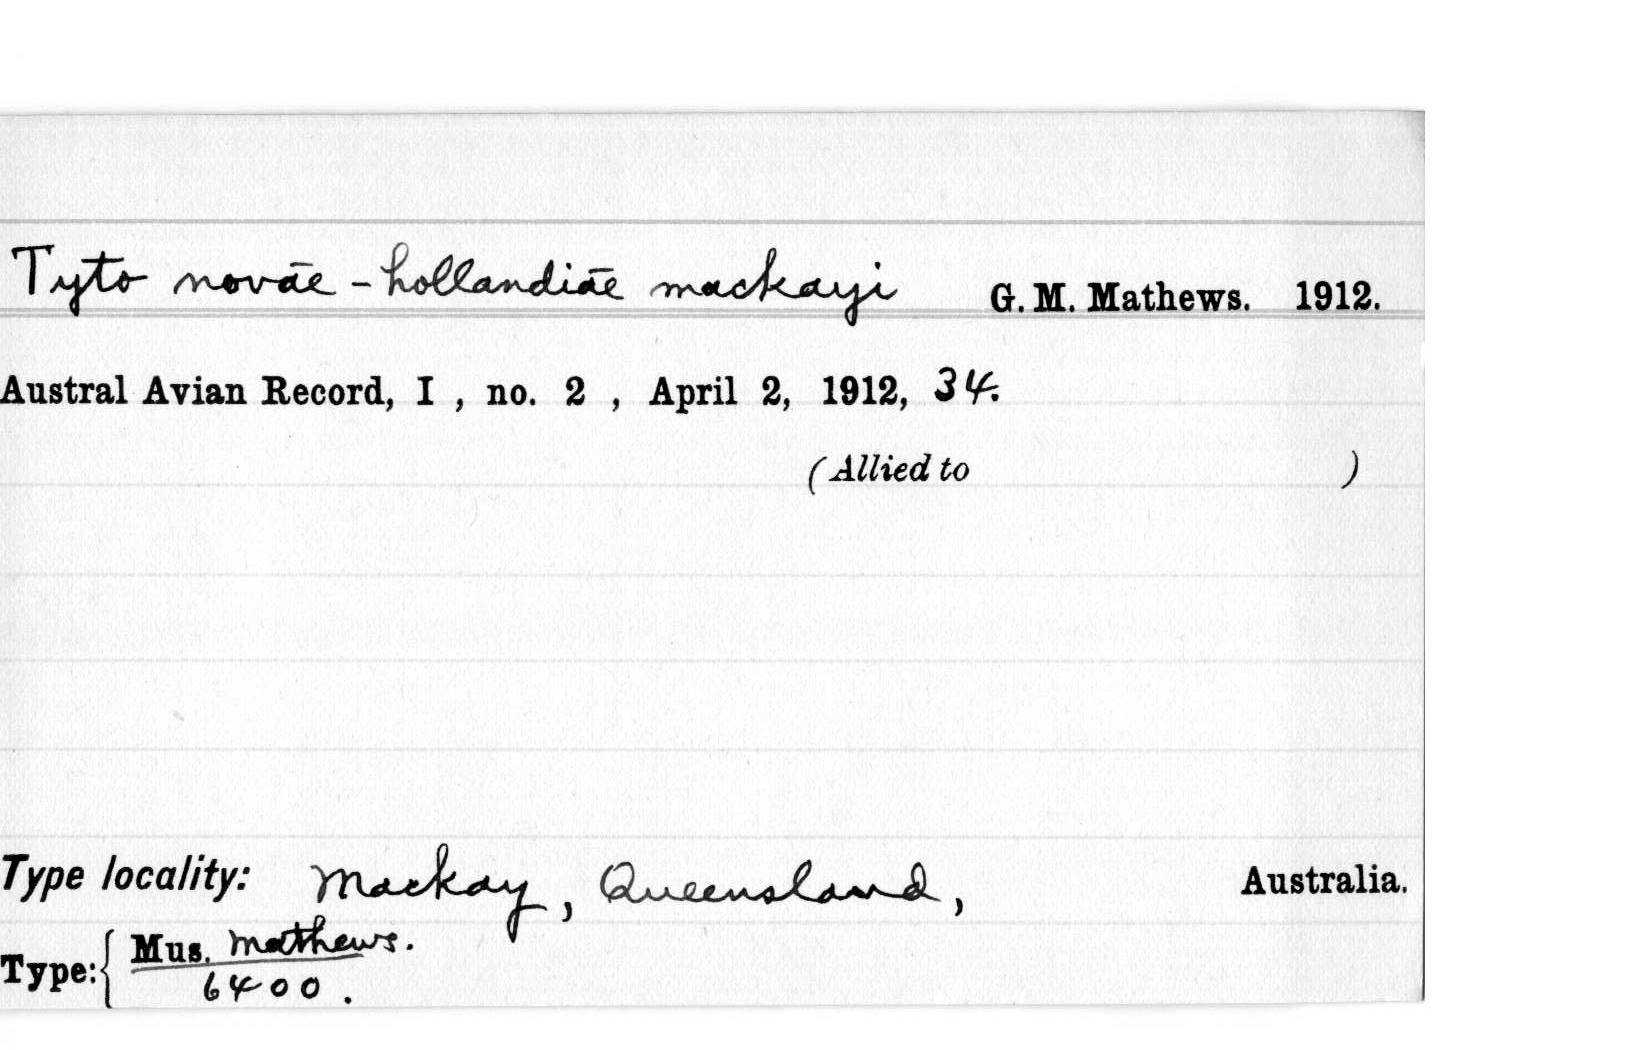 Tyto novae-hollandiae mackayi G. M. Mathews. 1912.
Austral Avian Record, I , no. 2 , April 2, 1912, 34.
(Allied to )
Type locality: Mackay, Queensland, Australia.
Type: { Mus. Mathews.
6400.